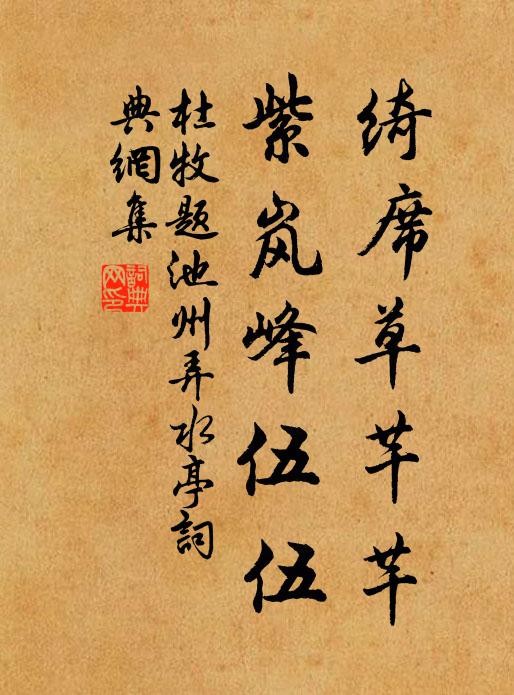 绮席草芊芊
紫岚峰伍伍
杜牧题池州弄水亭詞
典網集
詞典网印